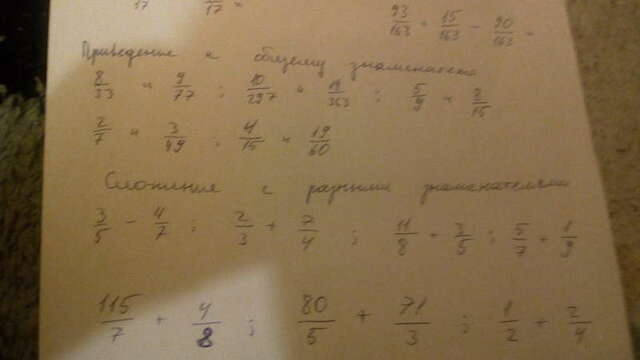 17 17 =
93/163 + 15/163 - 90/163 =
Приведение к общему знаменателю
8/33 и 9/77 ; 10/297 и 19/363 ; 5/9 и 2/15
2/7 и 3/49 ; 4/15 и 19/60
Сложение с разными знаменателями
3/5 - 4/7 ; 2/3 + 7/4 ; 11/8 + 3/5 ; 5/7 + 1/9
115/7 + 4/8 ; 80/5 + 71/3 ; 1/2 + 2/4